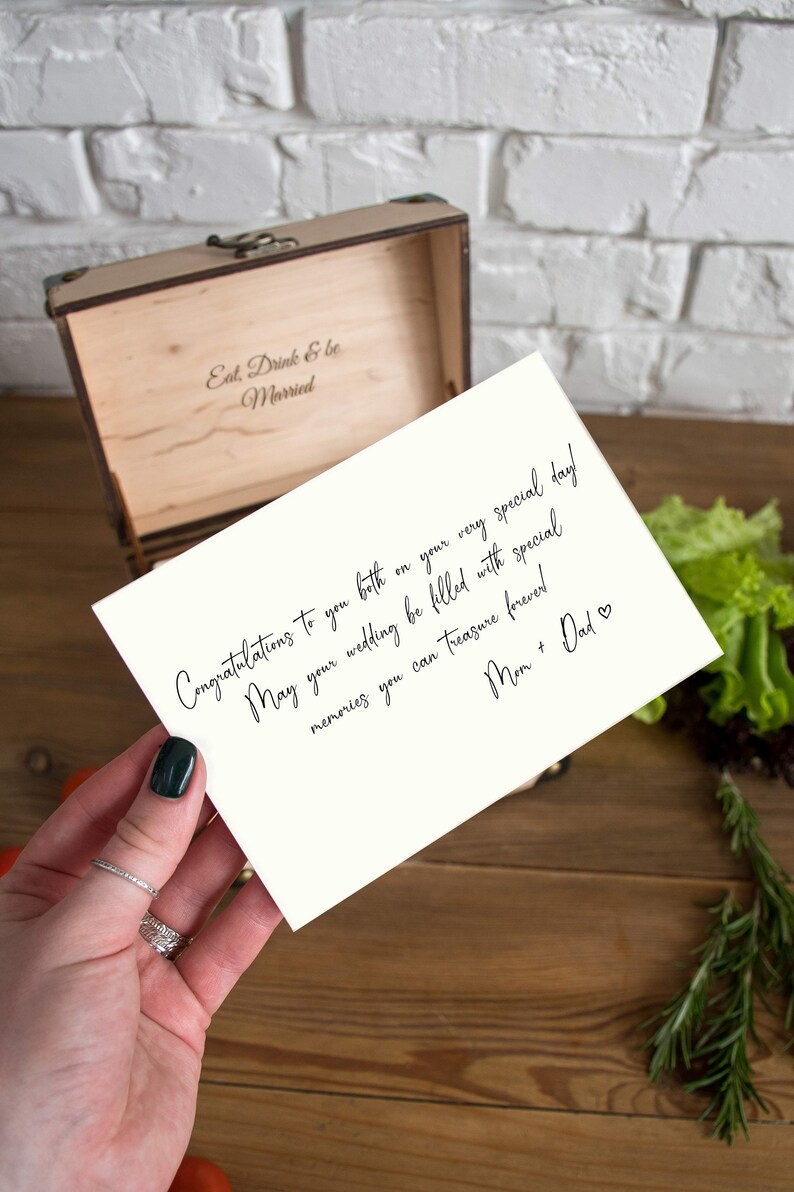 Eat, Drink & be
Married
Congratulations to you both on your very special day!
May your wedding be filled with special
memories you can treasure forever!
Mom + Dad ♡